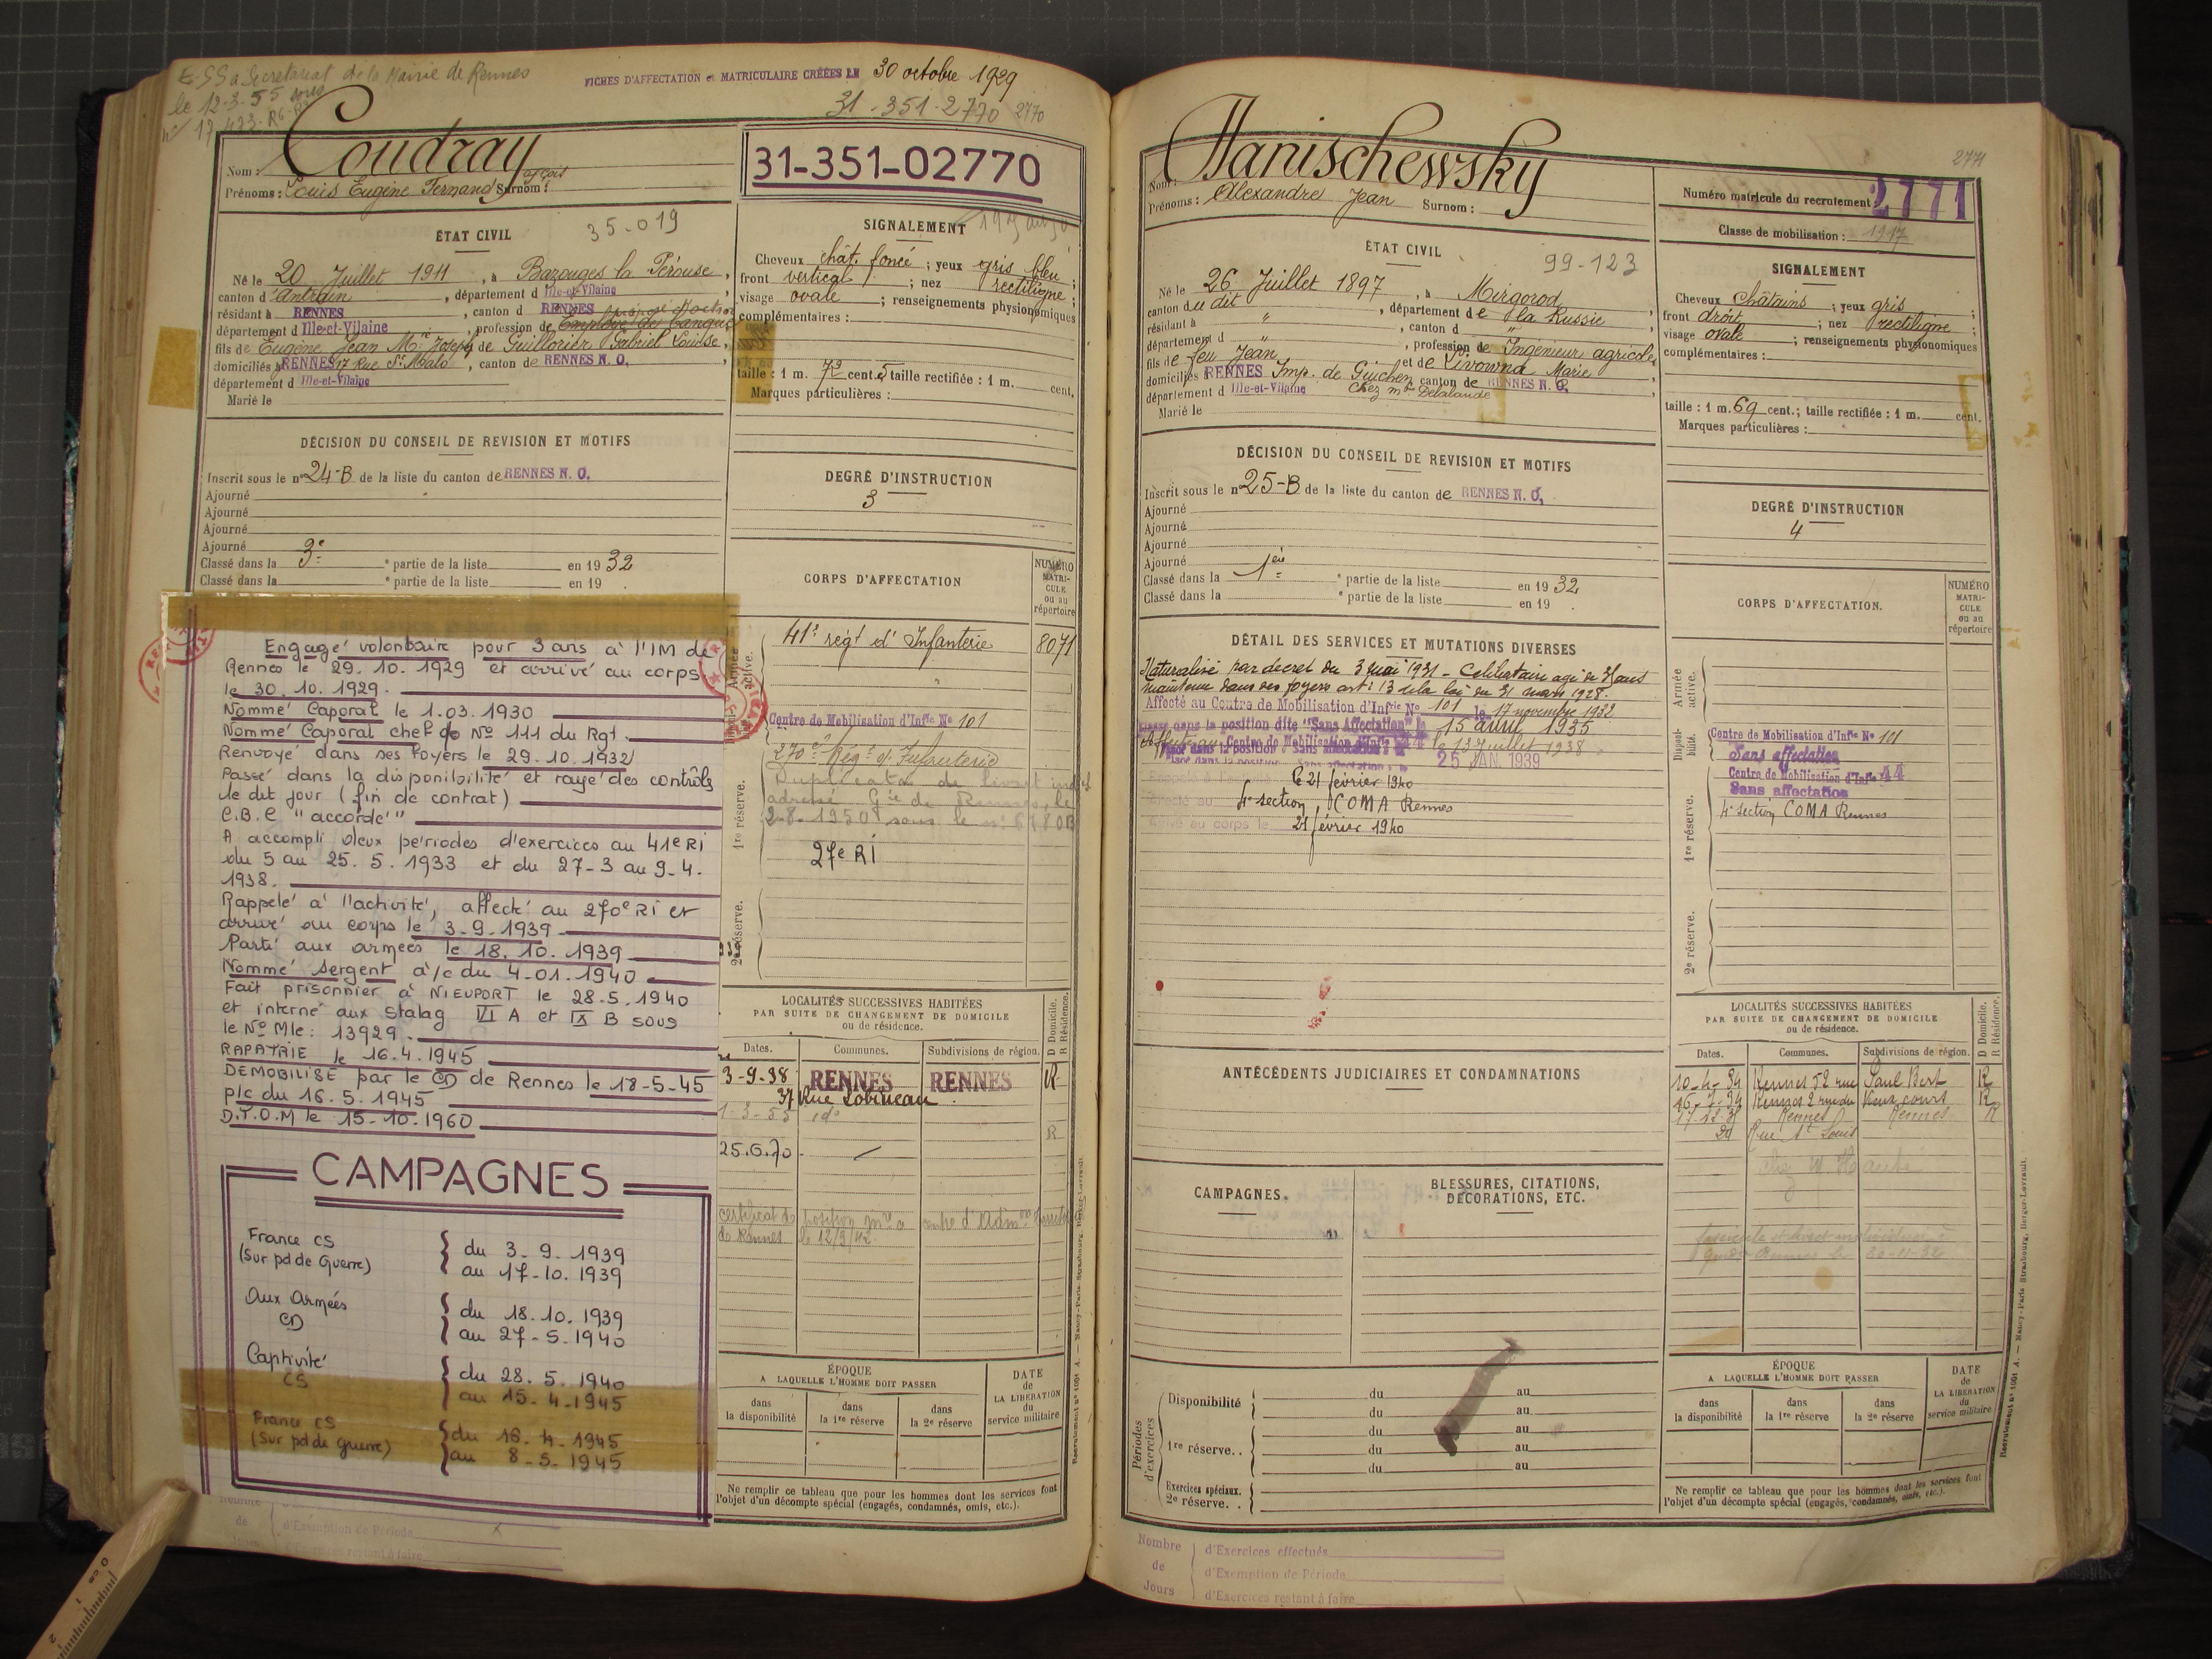 E-SS a Secretariat de la Mairie de Rennes
le 12-3-55 sous
n° 17.423-R6-R
FICHES D'AFFECTATION et MATRICULAIRE CRÉÉES LE 30 octobre 1929
31-351-2770 2770
Nom : Coudray
Prénoms : Louis Eugène Fernand Surnom :
31-351-02770
ÉTAT CIVIL 35-019
Né le 20 Juillet 1911, à Bazouges la Pérouse,
canton d'Antrain, département d Ille-et-Vilaine
résidant à RENNES, canton d RENNES
département d Ille-et-Vilaine, profession de Employé de banque
fils de Eugène Jean Mie Joseph et de Guillorier Gabriel Louise,
domiciliés à RENNES 17 Rue St Malo, canton de RENNES N. O.,
département d Ille-et-Vilaine
Marié le
SIGNALEMENT
Cheveux chât. foncé ; yeux gris bleu ;
front vertical ; nez rectiligne ;
visage ovale ; renseignements physionomiques
complémentaires :
taille : 1 m. 73 cent. 5 taille rectifiée : 1 m. cent.
Marques particulières :
DÉCISION DU CONSEIL DE REVISION ET MOTIFS
Inscrit sous le n° 24-B de la liste du canton de RENNES N. O.
Ajourné
Ajourné
Ajourné
Ajourné
Classé dans la 3e partie de la liste en 1932
Classé dans la e partie de la liste en 19 .
DEGRÉ D'INSTRUCTION
3
CORPS D'AFFECTATION
NUMÉRO MATRI-CULE ou au répertoire
Engagé volontaire pour 3 ans à l'IM de
Rennes le 29.10.1929 et arrivé au corps
le 30.10.1929.
Nommé Caporal le 1.03.1930
Nommé Caporal chef do N° 111 du Rgt.
Renvoyé dans ses foyers le 29.10.1932
Passé dans la disponibilité et rayé des contrôls
le dit jour (fin de contrat)
C.B.C "accordé"
A accompli deux périodes d'exercices au 41e RI
du 5 au 25.5.1933 et du 27-3 au 9-4.
1938.
Rappelé à l'activité, affecté au 270e RI et
arrivé au corps le 3-9-1939
Parti aux armées le 18.10.1939
Nommé Sergent à/c du 4-01.1940
Fait prisonnier à NIEUPORT le 28.5.1940
et interné aux stalag VI A et IX B sous
le N° Mle : 13929.
RAPATRIE le 16.4.1945
DEMOBILISE par le CD de Rennes le 18-5-45
p/c du 16.5.1945
D.T.O.M le 15-10.1960
CAMPAGNES
France CS
(Sur pd de Guerre)
du 3-9-1939
au 17-10.1939
Aux Armées
CD
du 18.10.1939
au 27-5.1940
Captivité
CS
du 28.5.1940
au 15.4.1945
France CS
(Sur pd de guerre)
du 16.4.1945
au 8-5.1945
Armée active.
41e régt d'Infanterie 8071
Centre de Mobilisation d'Infie No 101
1re réserve.
270e Régt d'Infanterie
Duplicata de livret indel
adressé Gie de Rennes, le
2-8-1950 sous le n° 6780B
27e RI
2e réserve.
LOCALITÉS SUCCESSIVES HABITÉES
PAR SUITE DE CHANGEMENT DE DOMICILE
ou de résidence.
D Domicile. R Résidence.
Dates. Communes. Subdivisions de région.
3-9-38 RENNES RENNES R
37 Rue Lobineau
1-3-55 ido R
25.6.70
certificat de position mre a centre d'Admon
de Rennes le 12/3/42.
ÉPOQUE
A LAQUELLE L'HOMME DOIT PASSER
DATE de LA LIBÉRATION du service militaire
dans la disponibilité
dans la 1re réserve
dans la 2e réserve
Ne remplir ce tableau que pour les hommes dont les services font
l'objet d'un décompte spécial (engagés, condamnés, omis, etc.).
Nombre de Jours
d'Exemption de Période
d'Exercices restant à faire
Recrutement n° 1001 A. — Nancy-Paris-Strasbourg, Berger-Levrault.
2771
Nom : Hanischewsky
Prénoms : Alexandre Jean Surnom :
Numéro matricule du recrutement 2771
Classe de mobilisation : 1917
ÉTAT CIVIL 99-123
Né le 26 Juillet 1897, à Mirgorod
canton du dit, département de la Russie,
résidant à ", canton d "
département d ", profession de Ingénieur agricole,
fils de feu Jean et de Livowna Marie,
domiciliés RENNES Imp. de Guichen, canton de RENNES N. O.,
département d Ille-et-Vilaine Chez me Delalande
Marié le
SIGNALEMENT
Cheveux châtains ; yeux gris
front droit ; nez rectiligne ;
visage ovale ; renseignements physionomiques
complémentaires :
taille : 1 m. 69 cent. ; taille rectifiée : 1 m. cent.
Marques particulières :
DÉCISION DU CONSEIL DE REVISION ET MOTIFS
Inscrit sous le n° 25-B de la liste du canton de RENNES N. O.
Ajourné
Ajourné
Ajourné
Ajourné
Classé dans la 1ère partie de la liste en 1932
Classé dans la e partie de la liste en 19 .
DEGRÉ D'INSTRUCTION
4
CORPS D'AFFECTATION.
NUMÉRO MATRI-CULE ou au répertoire
DÉTAIL DES SERVICES ET MUTATIONS DIVERSES
Naturalisé par decret du 3 mai 1931 - Célibataire agé de 31 ans
maintenu dans ses foyers art. 13 de la loi du 31 mars 1928.
Affecté au Centre de Mobilisation d'Infrie No 101 le 17 novembre 1932
Classé dans la position dite "Sans Affectation" le 15 avril 1935
Affecté au Centre de Mobilisation d'Infie 44 le 13 Juillet 1938
Placé dans la position "Sans affectation" le 25 JAN. 1939
Rappelé à l'activité le 21 février 1940
Affecté au 4e section, COMA Rennes
Arrivé au corps le 21 février 1940
Armée active.
Disponibilité.
Centre de Mobilisation d'Infie No 101
Sans affectation
Centre de Mobilisation d'Infie 44
Sans affectation
1re réserve.
4e section COMA Rennes
2e réserve.
ANTÉCÉDENTS JUDICIAIRES ET CONDAMNATIONS
CAMPAGNES.
BLESSURES, CITATIONS,
DÉCORATIONS, ETC.
LOCALITÉS SUCCESSIVES HABITÉES
PAR SUITE DE CHANGEMENT DE DOMICILE
ou de résidence.
D Domicile. R Résidence.
Dates. Communes. Subdivisions de région.
10-4-34 Rennes 52 rue Paul Bert R
Rennes 2 rue du Vieux cours R
Rennes Rennes R
24 Rue St Louis
Périodes d'exercices
Disponibilité du au
du au
1re réserve.. du au
du au
du au
Exercices spéciaux.
2e réserve. .
ÉPOQUE
A LAQUELLE L'HOMME DOIT PASSER
DATE de LA LIBÉRATION du service militaire
dans la disponibilité
dans la 1re réserve
dans la 2e réserve
Ne remplir ce tableau que pour les hommes dont les services font
l'objet d'un décompte spécial (engagés, condamnés, omis, etc.).
Nombre de Jours
d'Exercices effectués
d'Exemption de Période
d'Exercices restant à faire
Recrutement n° 1001 A. — Nancy-Paris-Strasbourg, Berger-Levrault.